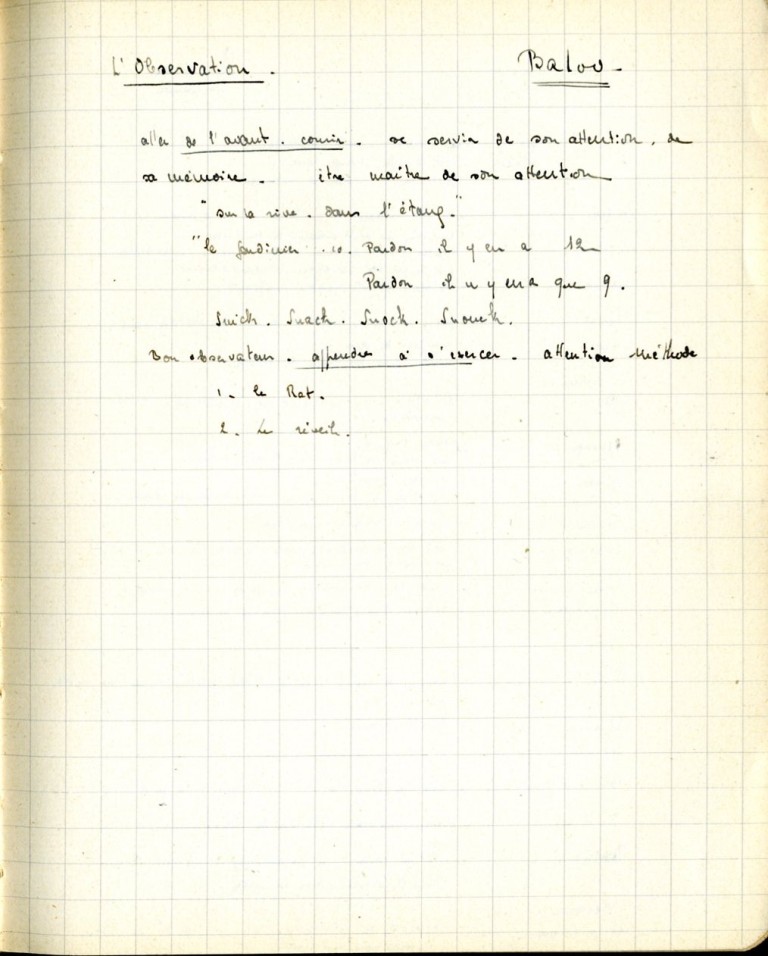 L'Observation. Baloo -
aller de l'avant. courir. se servir de son attention, de
sa mémoire. être maître de son attention
"sur la rive. dans l'étang."
"le Jardinier. 10. Pardon il y en a 12
Pardon il n'y en a que 9.
Snick. Snack. Snock. Snouck.
Bon observateur. apprendre à s'exercer. attention méthode
1. le Rat.
2. Le réveil.